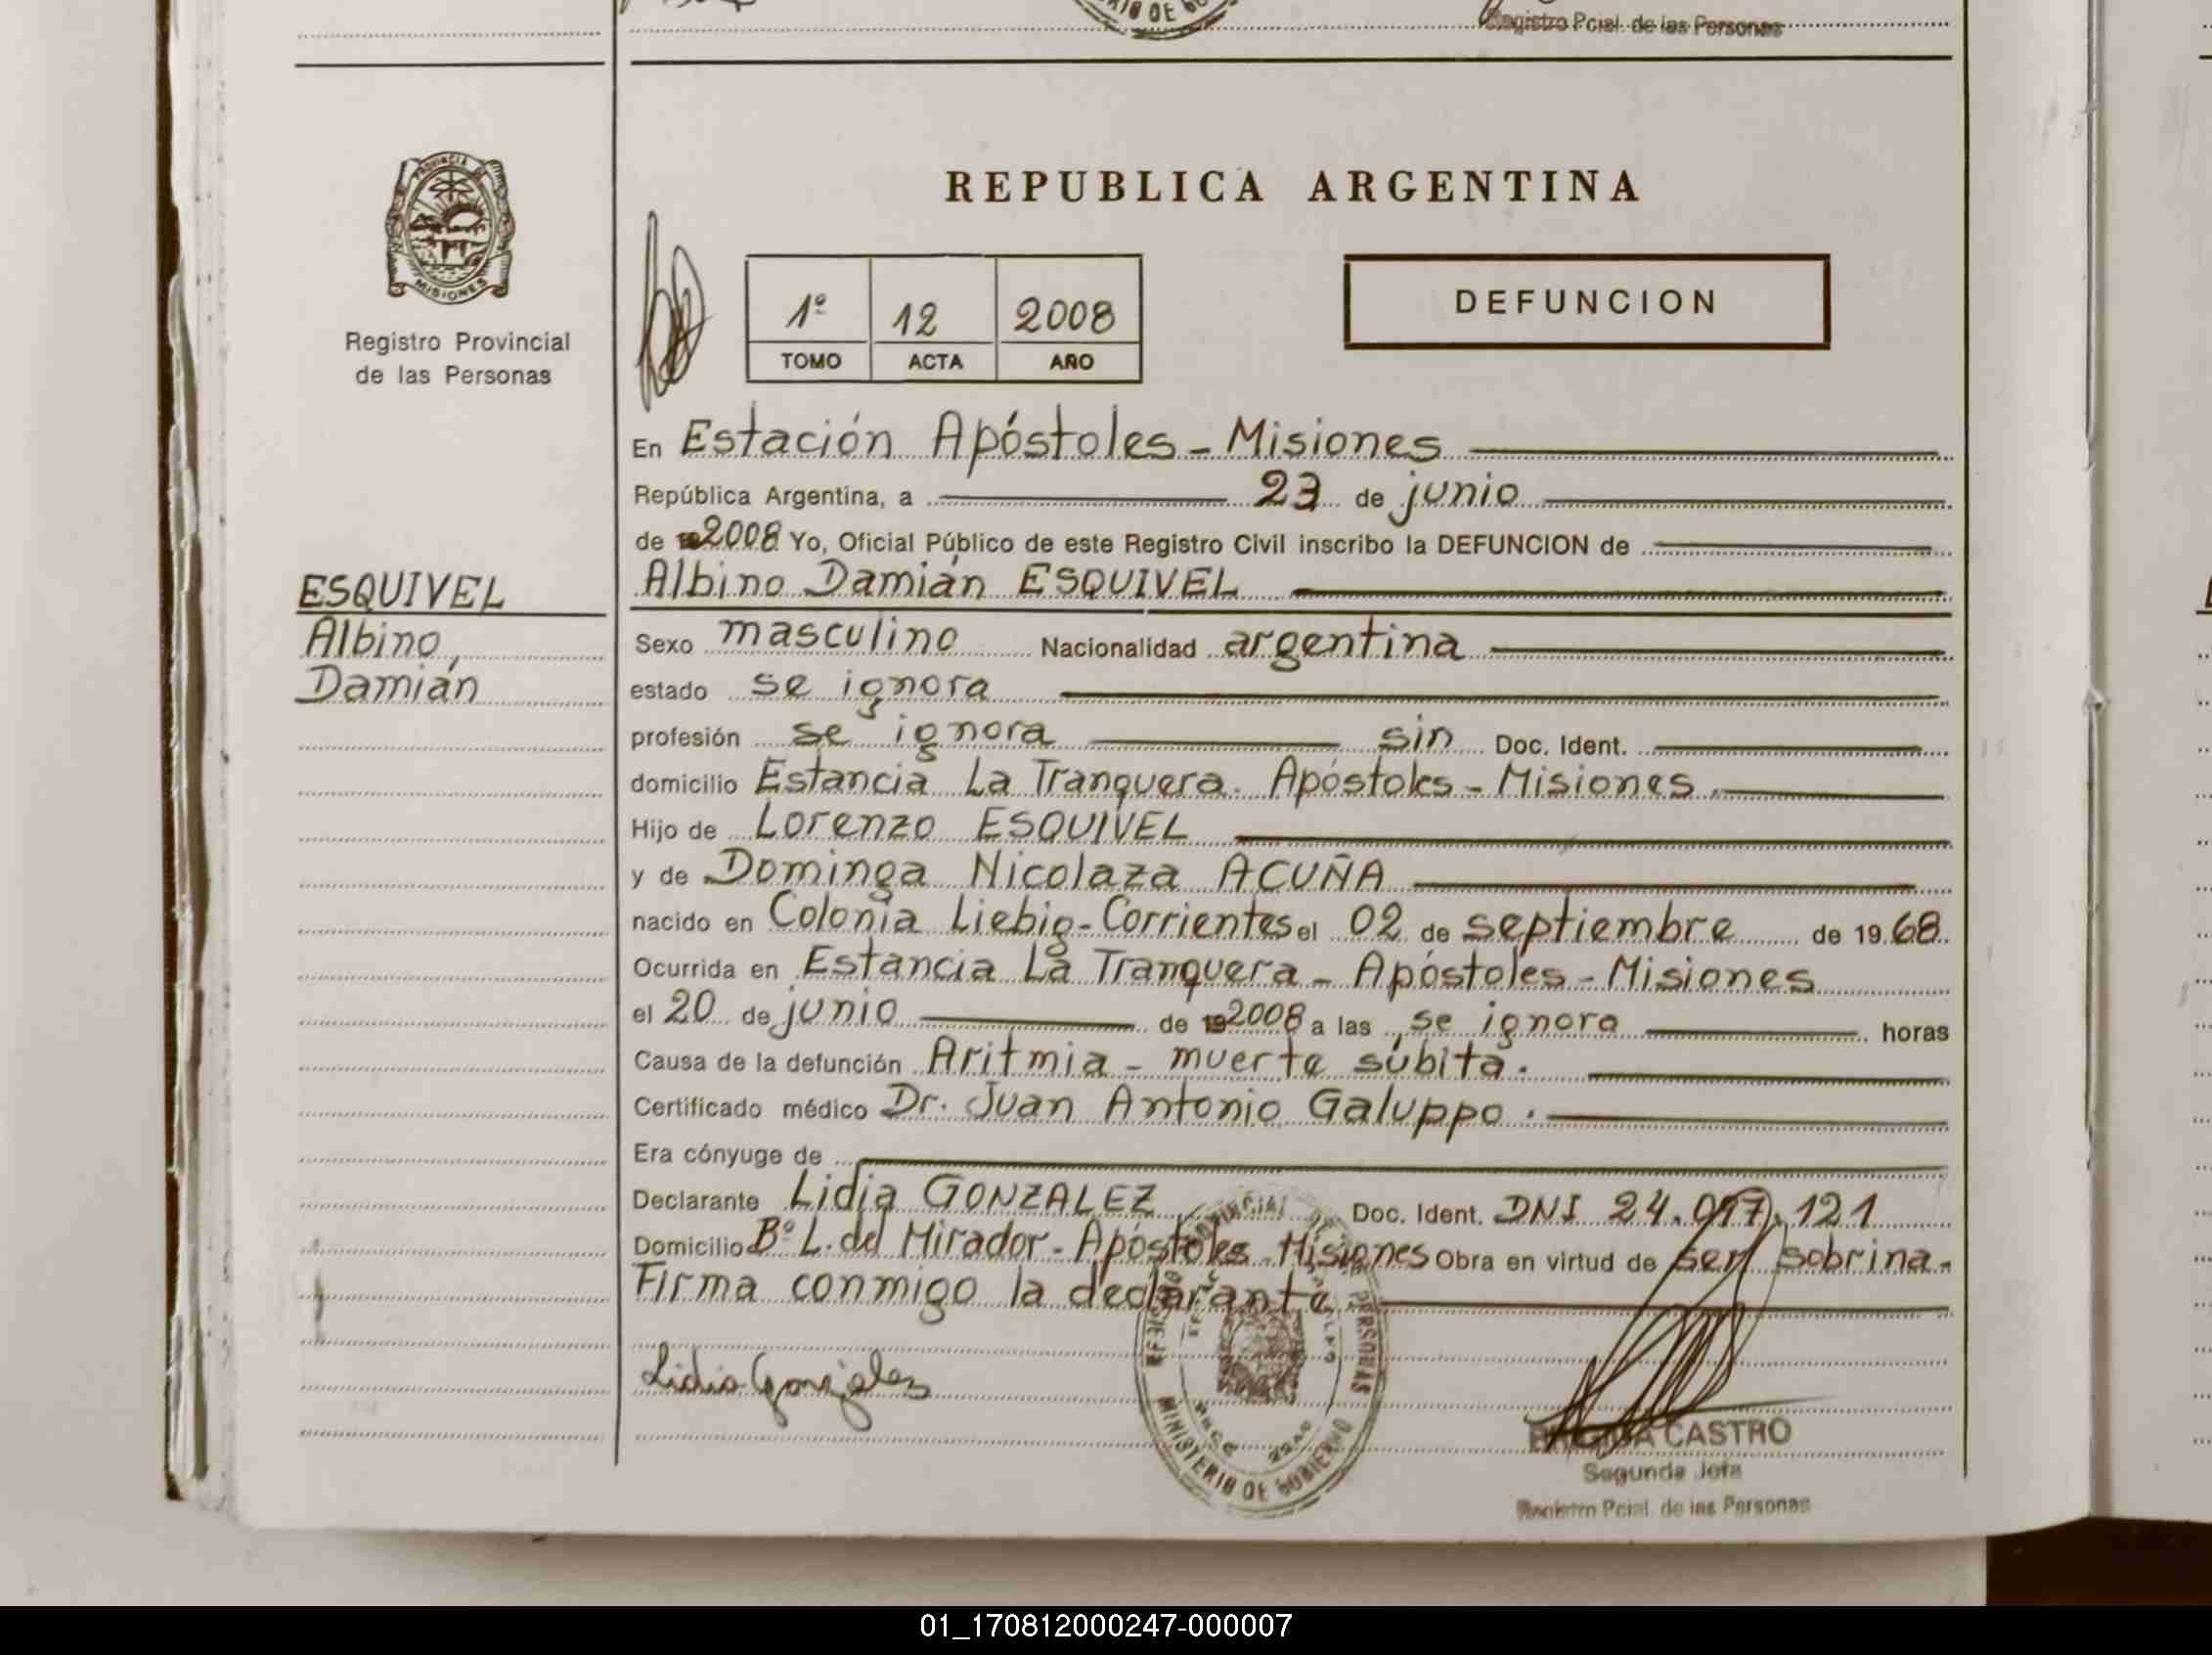 Registro Pcial. de las Personas
PROVINCIA DE
MISIONES
Registro Provincial
de las Personas
ESQUIVEL
Albino,
Damián
REPUBLICA ARGENTINA
1º 12 2008
TOMO ACTA AÑO
DEFUNCION
En Estación Apóstoles - Misiones
República Argentina, a 23 de junio
de 2008 Yo, Oficial Público de este Registro Civil inscribo la DEFUNCION de
Albino Damián ESQUIVEL
Sexo masculino Nacionalidad argentina
estado se ignora
profesión se ignora sin Doc. Ident.
domicilio Estancia La Tranquera. Apóstoles - Misiones.
Hijo de Lorenzo ESQUIVEL
y de Dominga Nicolaza ACUÑA
nacido en Colonia Liebig - Corrientes el 02 de septiembre de 1968
Ocurrida en Estancia La Tranquera - Apóstoles - Misiones
el 20 de junio de 192008 a las se ignora horas
Causa de la defunción Aritmia - muerte súbita.
Certificado médico Dr. Juan Antonio Galuppo.
Era cónyuge de
Declarante Lidia GONZALEZ Doc. Ident. DNI 24.097.121
Domicilio Bº L. del Mirador - Apóstoles - Misiones Obra en virtud de ser sobrina.
Firma conmigo la declarante
Lidia Gonzalez
PERSONAS
MINISTERIO DE GOBIERNO
CASTRO
Segunda Jefa
Registro Pcial. de las Personas
01_170812000247-000007